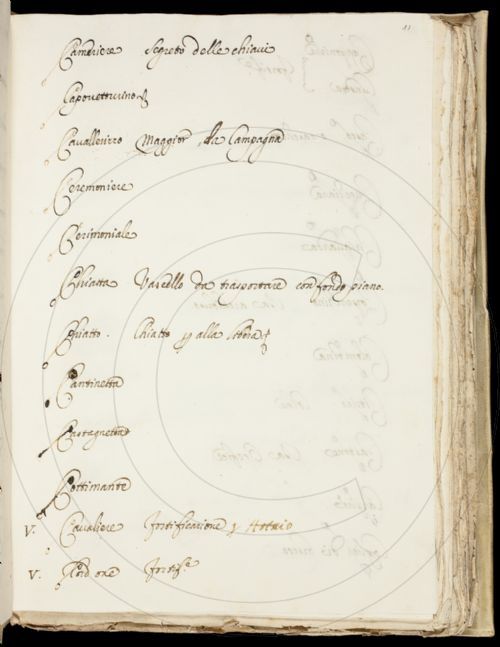 11
Camariere Segreto delle chiavi
Capovetturino
Cavallerizzo Maggior della Campagna
Ceremoniere
Cerimoniale
Chiatta Vascello da trasportare con fondo piano.
Chiatto. Chiatto alla
Cantinetta
Castagneton
Cottimante
V. Cavaliere fortificazione
V. Cordone fortif.e